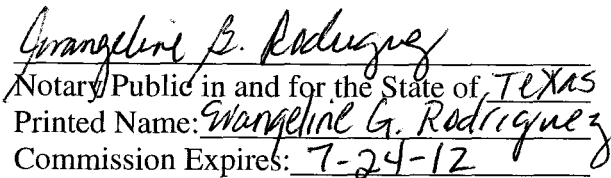 Evangeline G. Rodriguez
Notary Public in and for the State of Texas
Printed Name: Evangeline G. Rodriguez
Commission Expires: 7-24-12